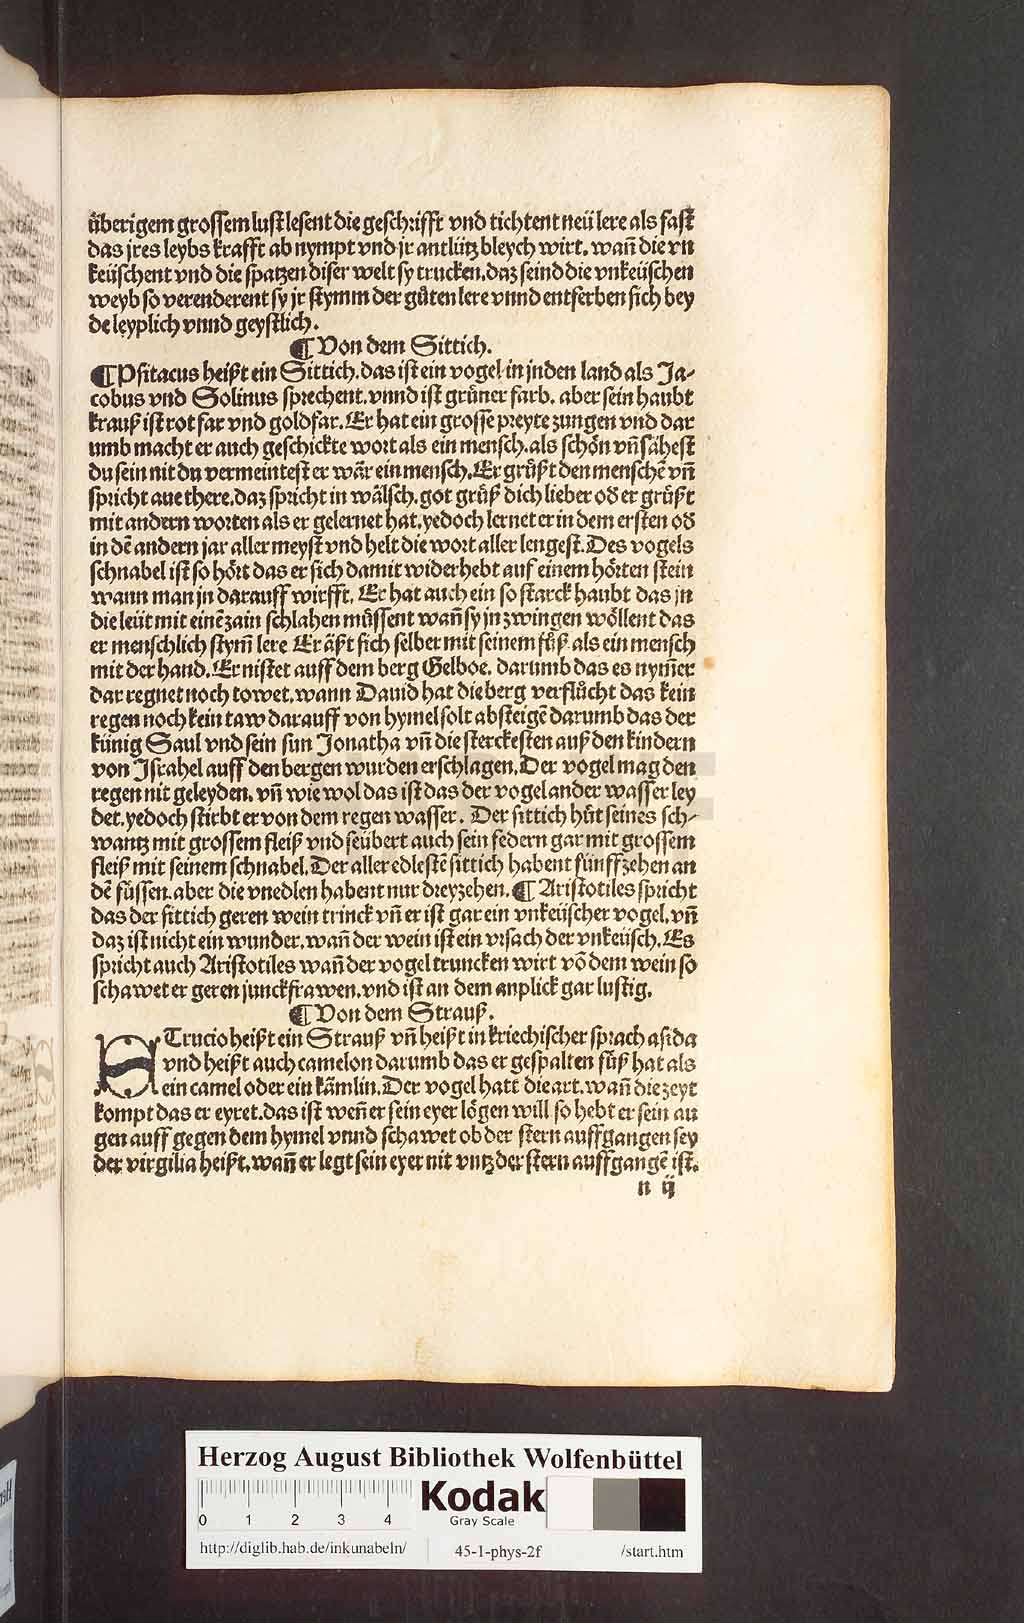 überigem grossem lust lesent die geschrifft vnd tichtent neü lere als fast
das jres leybs krafft ab nympt vnd jr antlütz bleych wirt. wañ die vn
keüschent vnd die spatzen diser welt sy trucken. daz seind die vnkeüschen
weyb so verenderent sy jr stymm der gůten lere vnnd entferben sich bey
de leyplich vnnd geystlich.
¶ Von dem Sittich.
¶ Psitacus heißt ein Sittich. das ist ein vogel in jnden land als Ja-
cobus vnd Solinus sprechent. vnnd ist grůner farb. aber sein haubt
krauß ist rot far vnd goldfar. Er hat ein grosse preyte zungen vnd dar
umb macht er auch geschickte wort als ein mensch. als schön vñ sähest
du sein nit du vermeintest er wår ein mensch. Er grůßt den menschē vñ
spricht aue there. daz spricht in wålsch. got grůß dich lieber oď er grůßt
mit andern worten als er gelernet hat. yedoch lernet er in dem ersten oď
in dē andern jar aller meyst vnd helt die wort aller lengest. Des vogels
schnabel ist so hört das er sich damit widerhebt auf einem hörten stein
wann man jn darauff wirfft. Er hat auch ein so starck haubt das jn
die leüt mit einē zain schlahen můssent wañ sy jn zwingen wöllent das
er menschlich stym̄ lere Er åßt sich selber mit seinem fůß als ein mensch
mit der hand. Er nistet auff dem berg Gelboe. darumb das es nym̄er
dar regnet noch towet. wann Dauid hat die berg verflůcht das kein
regen noch kein taw darauff von hymel solt absteigē darumb das der
künig Saul vnd sein sun Jonatha vñ die sterckesten auß den kindern
von Israhel auff den bergen wurden erschlagen. Der vogel mag den
regen nit geleyden. vñ wie wol das ist das der vogel ander wasser ley
det. yedoch stirbt er von dem regen wasser. Der sittich hůt seines sch-
wantz mit grossem fleiß vnd seübert auch sein federn gar mit grossem
fleiß mit seinem schnabel. Der aller edlestē sittich habent fünff zehen an
dē füssen. aber die vnedlen habent nur dreyzehen. ¶ Aristotiles spricht
das der sittich geren wein trinck vñ er ist gar ein vnkeüscher vogel. vñ
daz ist nicht ein wunder. wañ der wein ist ein vrsach der vnkeüsch. Es
spricht auch Aristotiles wañ der vogel truncken wirt vō dem wein so
schawet er geren junckfrawen. vnd ist an dem anplick gar lustig.
¶ Von dem Strauß.
STrucio heißt ein Strauß vñ heißt in kriechischer sprach asida
vnd heißt auch camelon darumb das er gespalten fůß hat als
ein camel oder ein kåmlin. Der vogel hatt die art. wañ die zeyt
kompt das er eyret. das ist weñ er sein eyer lögen will so hebt er sein au
gen auff gegen dem hymel vnnd schawet ob der stern auffgangen sey
der virgilia heißt. wañ er legt sein eyer nit vntz der stern auffgangē ist.
n ij
Herzog August Bibliothek Wolfenbüttel
0 1 2 3 4
Kodak
Gray Scale
http://diglib.hab.de/inkunabeln/ 45-1-phys-2f /start.htm